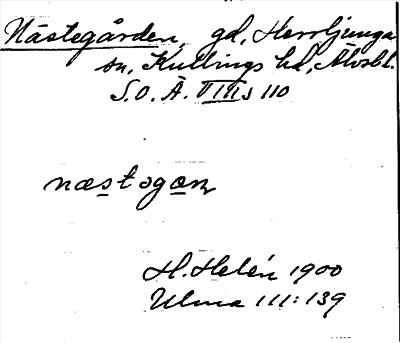 Nästegården, gd, Herrljunga
sn, Kullings hd, Älvsbl.
S.O.Ä. VIII s 110
næstogan
H. Helén 1900
Ulma 111:139